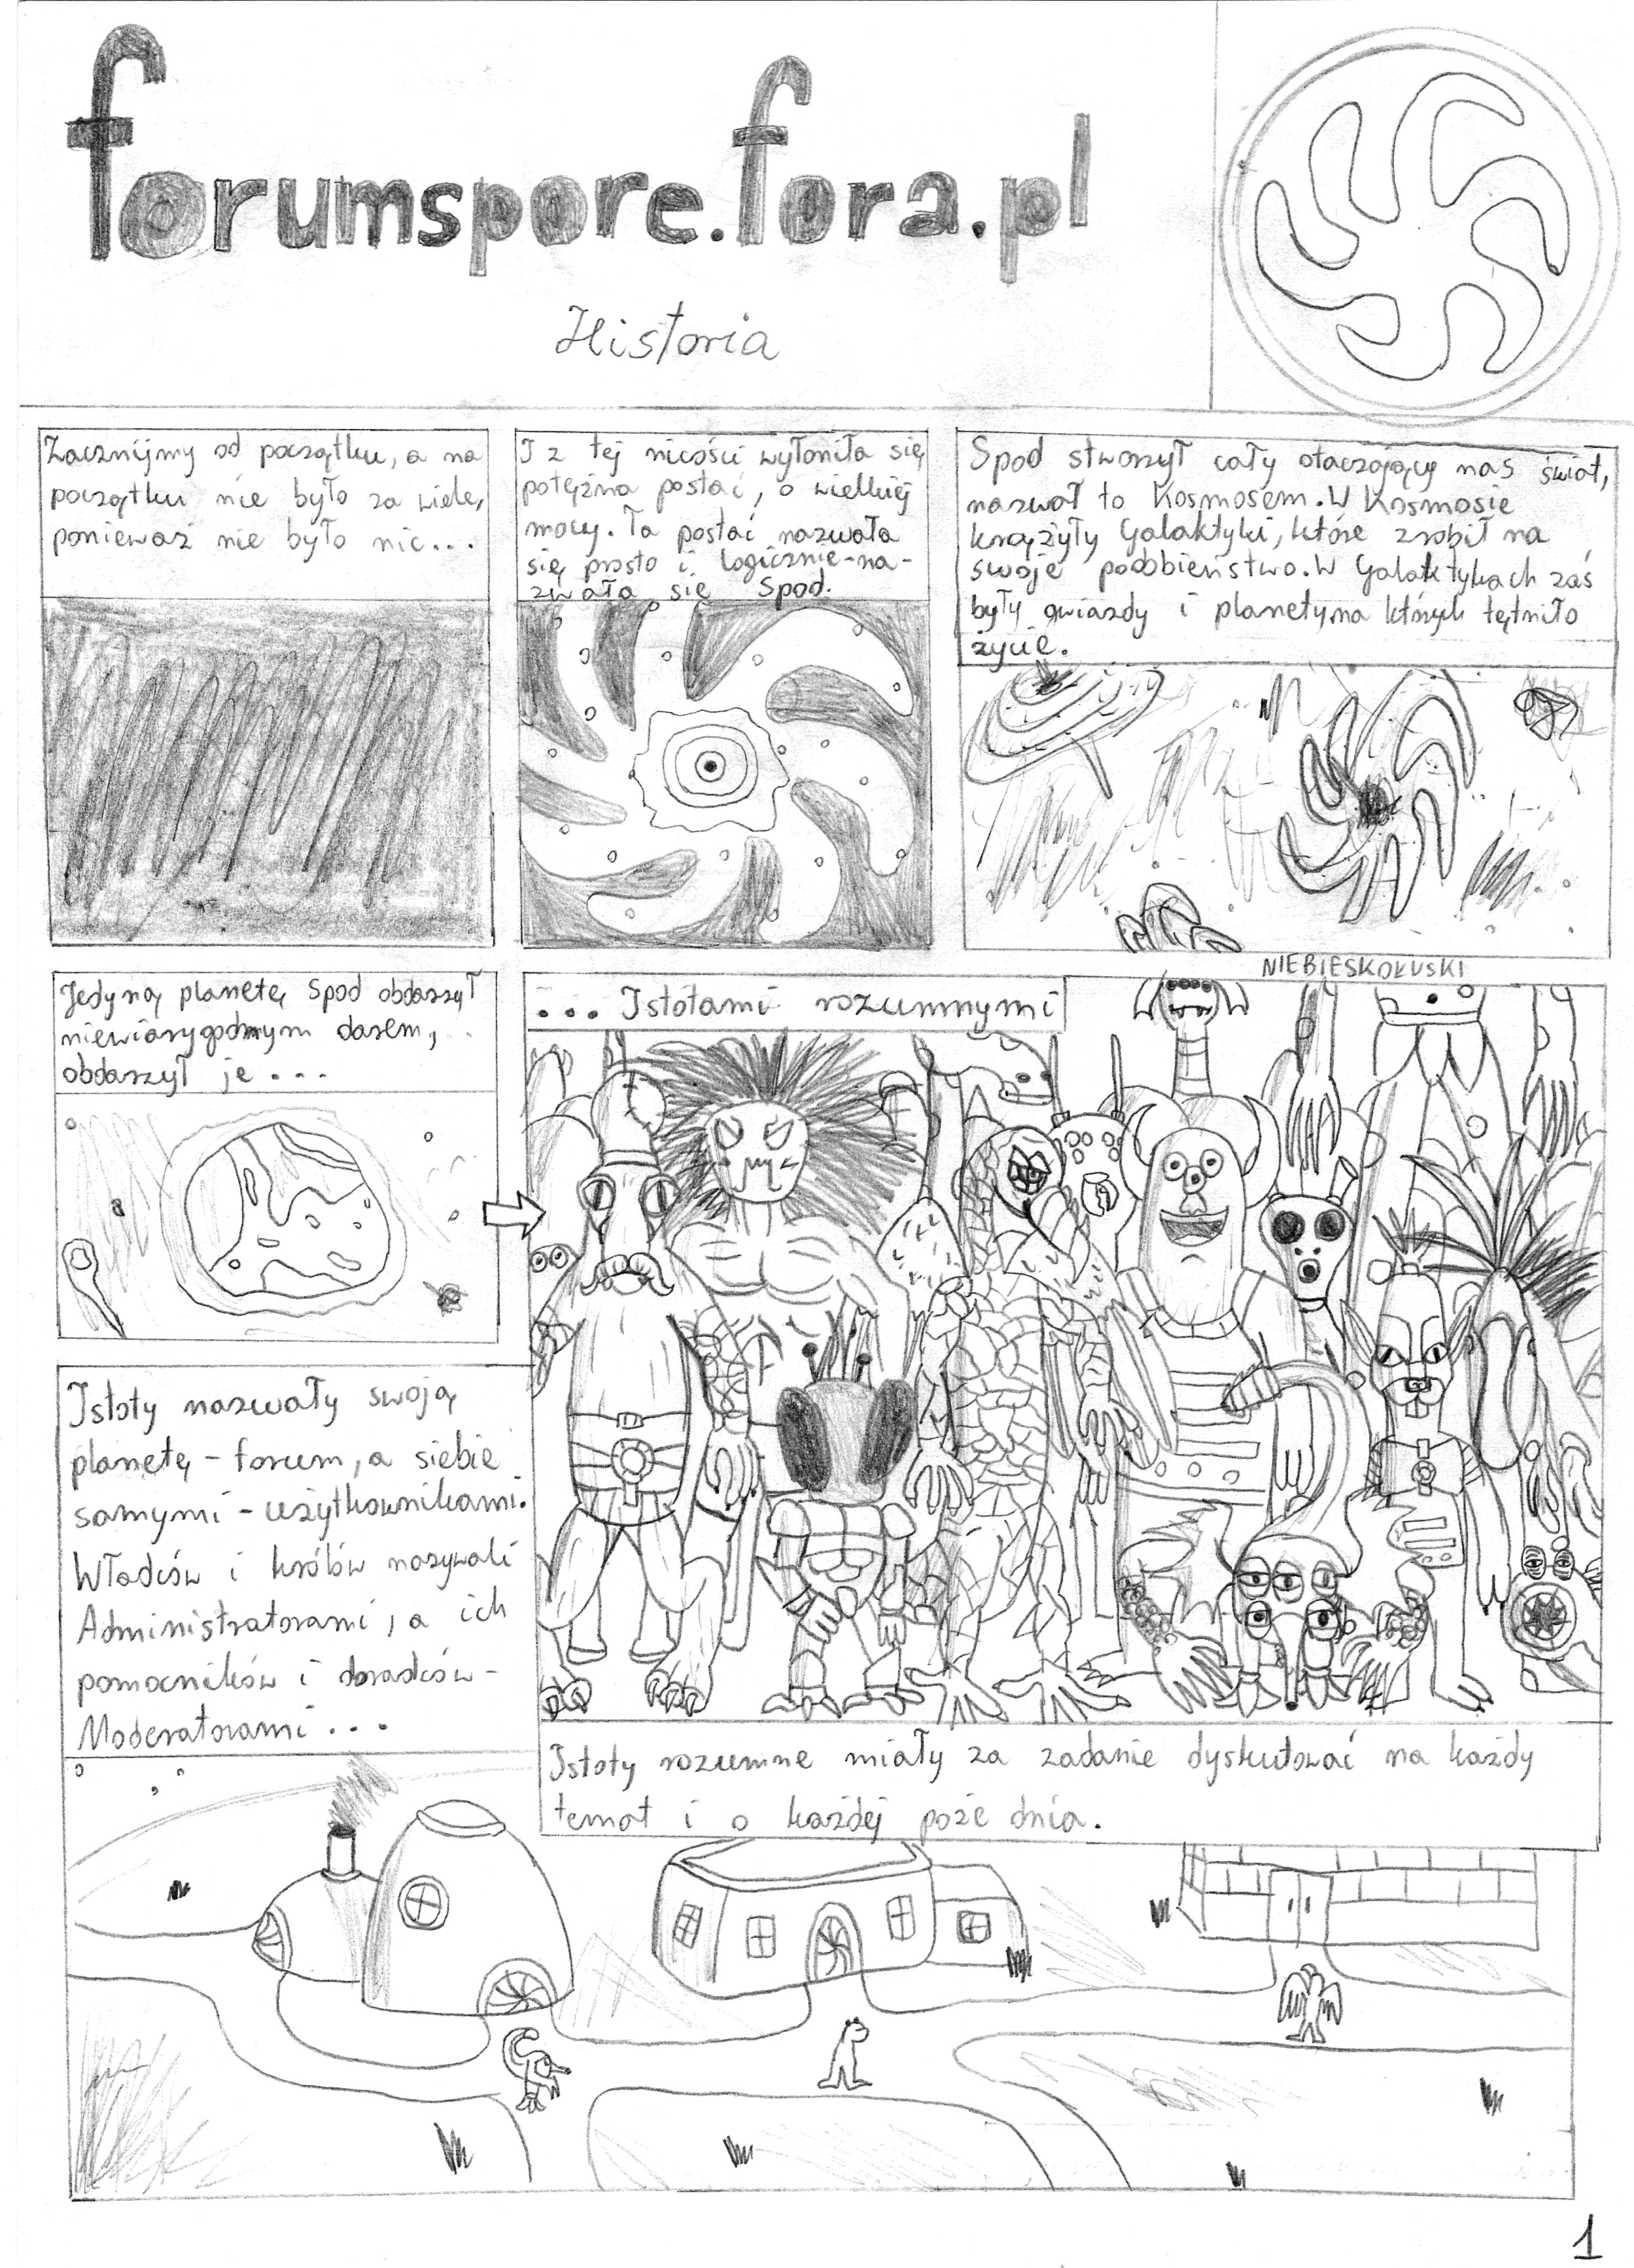 forumspore.fora.pl
Historia
Zacznijmy od początku, a na
początku nie było za wiele,
ponieważ nie było nic...
I z tej nicości wyłoniła się
potężna postać, o wielkiej
mocy. Ta postać nazwała
się prosto i logicznie-na-
zwała się Spod.
Spod stworzył cały otaczający nas świat,
nazwał to Kosmosem. W Kosmosie
krążyły Galaktyki, które zrobił na
swoje podobieństwo. W Galaktykach zaś
były gwiazdy i planety, na których tętniło
życie.
Jedyną planetę Spod obdarzył
niewiarygodnym darem,
obdarzył je...
NIEBIESKOŁUSKI
... Istotami rozumnymi
Istoty nazwały swoją
planetę - forum, a siebie
samymi - użytkownikami.
Władców i królów nazywali
Administratorami, a ich
pomocników i doradców -
Moderatorami...
Istoty rozumne miały za zadanie dyskutować na każdy
temat i o każdej poże dnia.
1